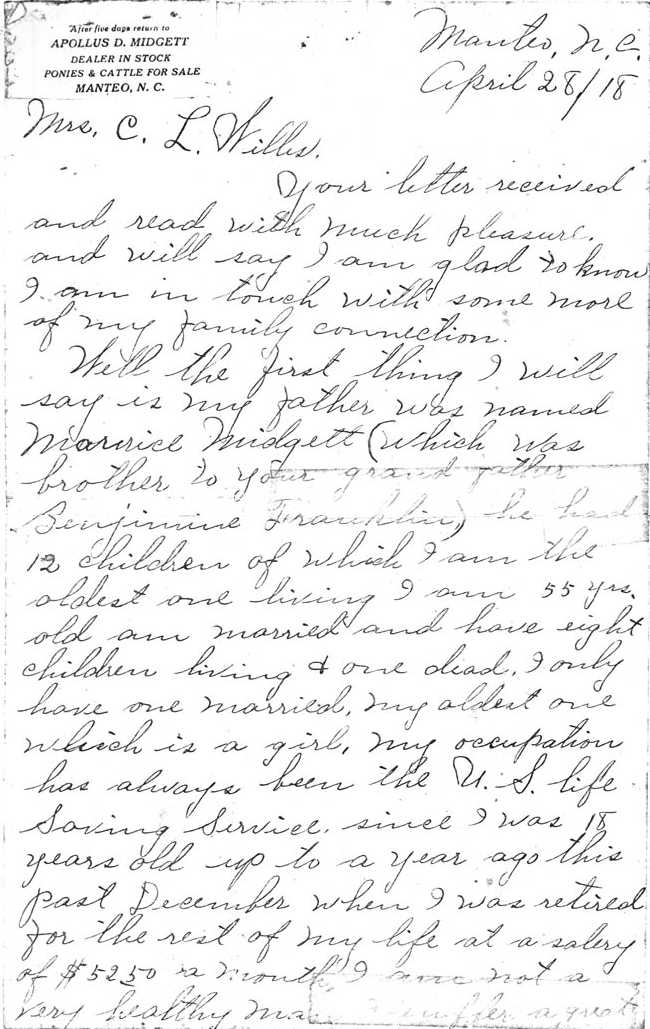 "After five days return to
APOLLUS D. MIDGETT
DEALER IN STOCK
PONIES & CATTLE FOR SALE
MANTEO, N. C.
Manteo, N. C.
April 28/18
Mrs. C. L. Willis.
Your letter received
and read with much pleasure.
and will say I am glad to know
I am in touch with some more
of my family connection.
Well the first thing I will
say is my father was named
Maurice Midgett (which was
brother to your grand father
Benjimine Franklin,) he had
12 children of which I am the
oldest one living I am 55 yrs.
old am married and have eight
children living & one dead. I only
have one married, my oldest one
which is a girl, my occupation
has always been the U. S. life
Saving Service. since I was 18
years old up to a year ago this
past December when I was retired
for the rest of my life at a salery
of $5250 a month I am not a
very healthy man I suffer a great